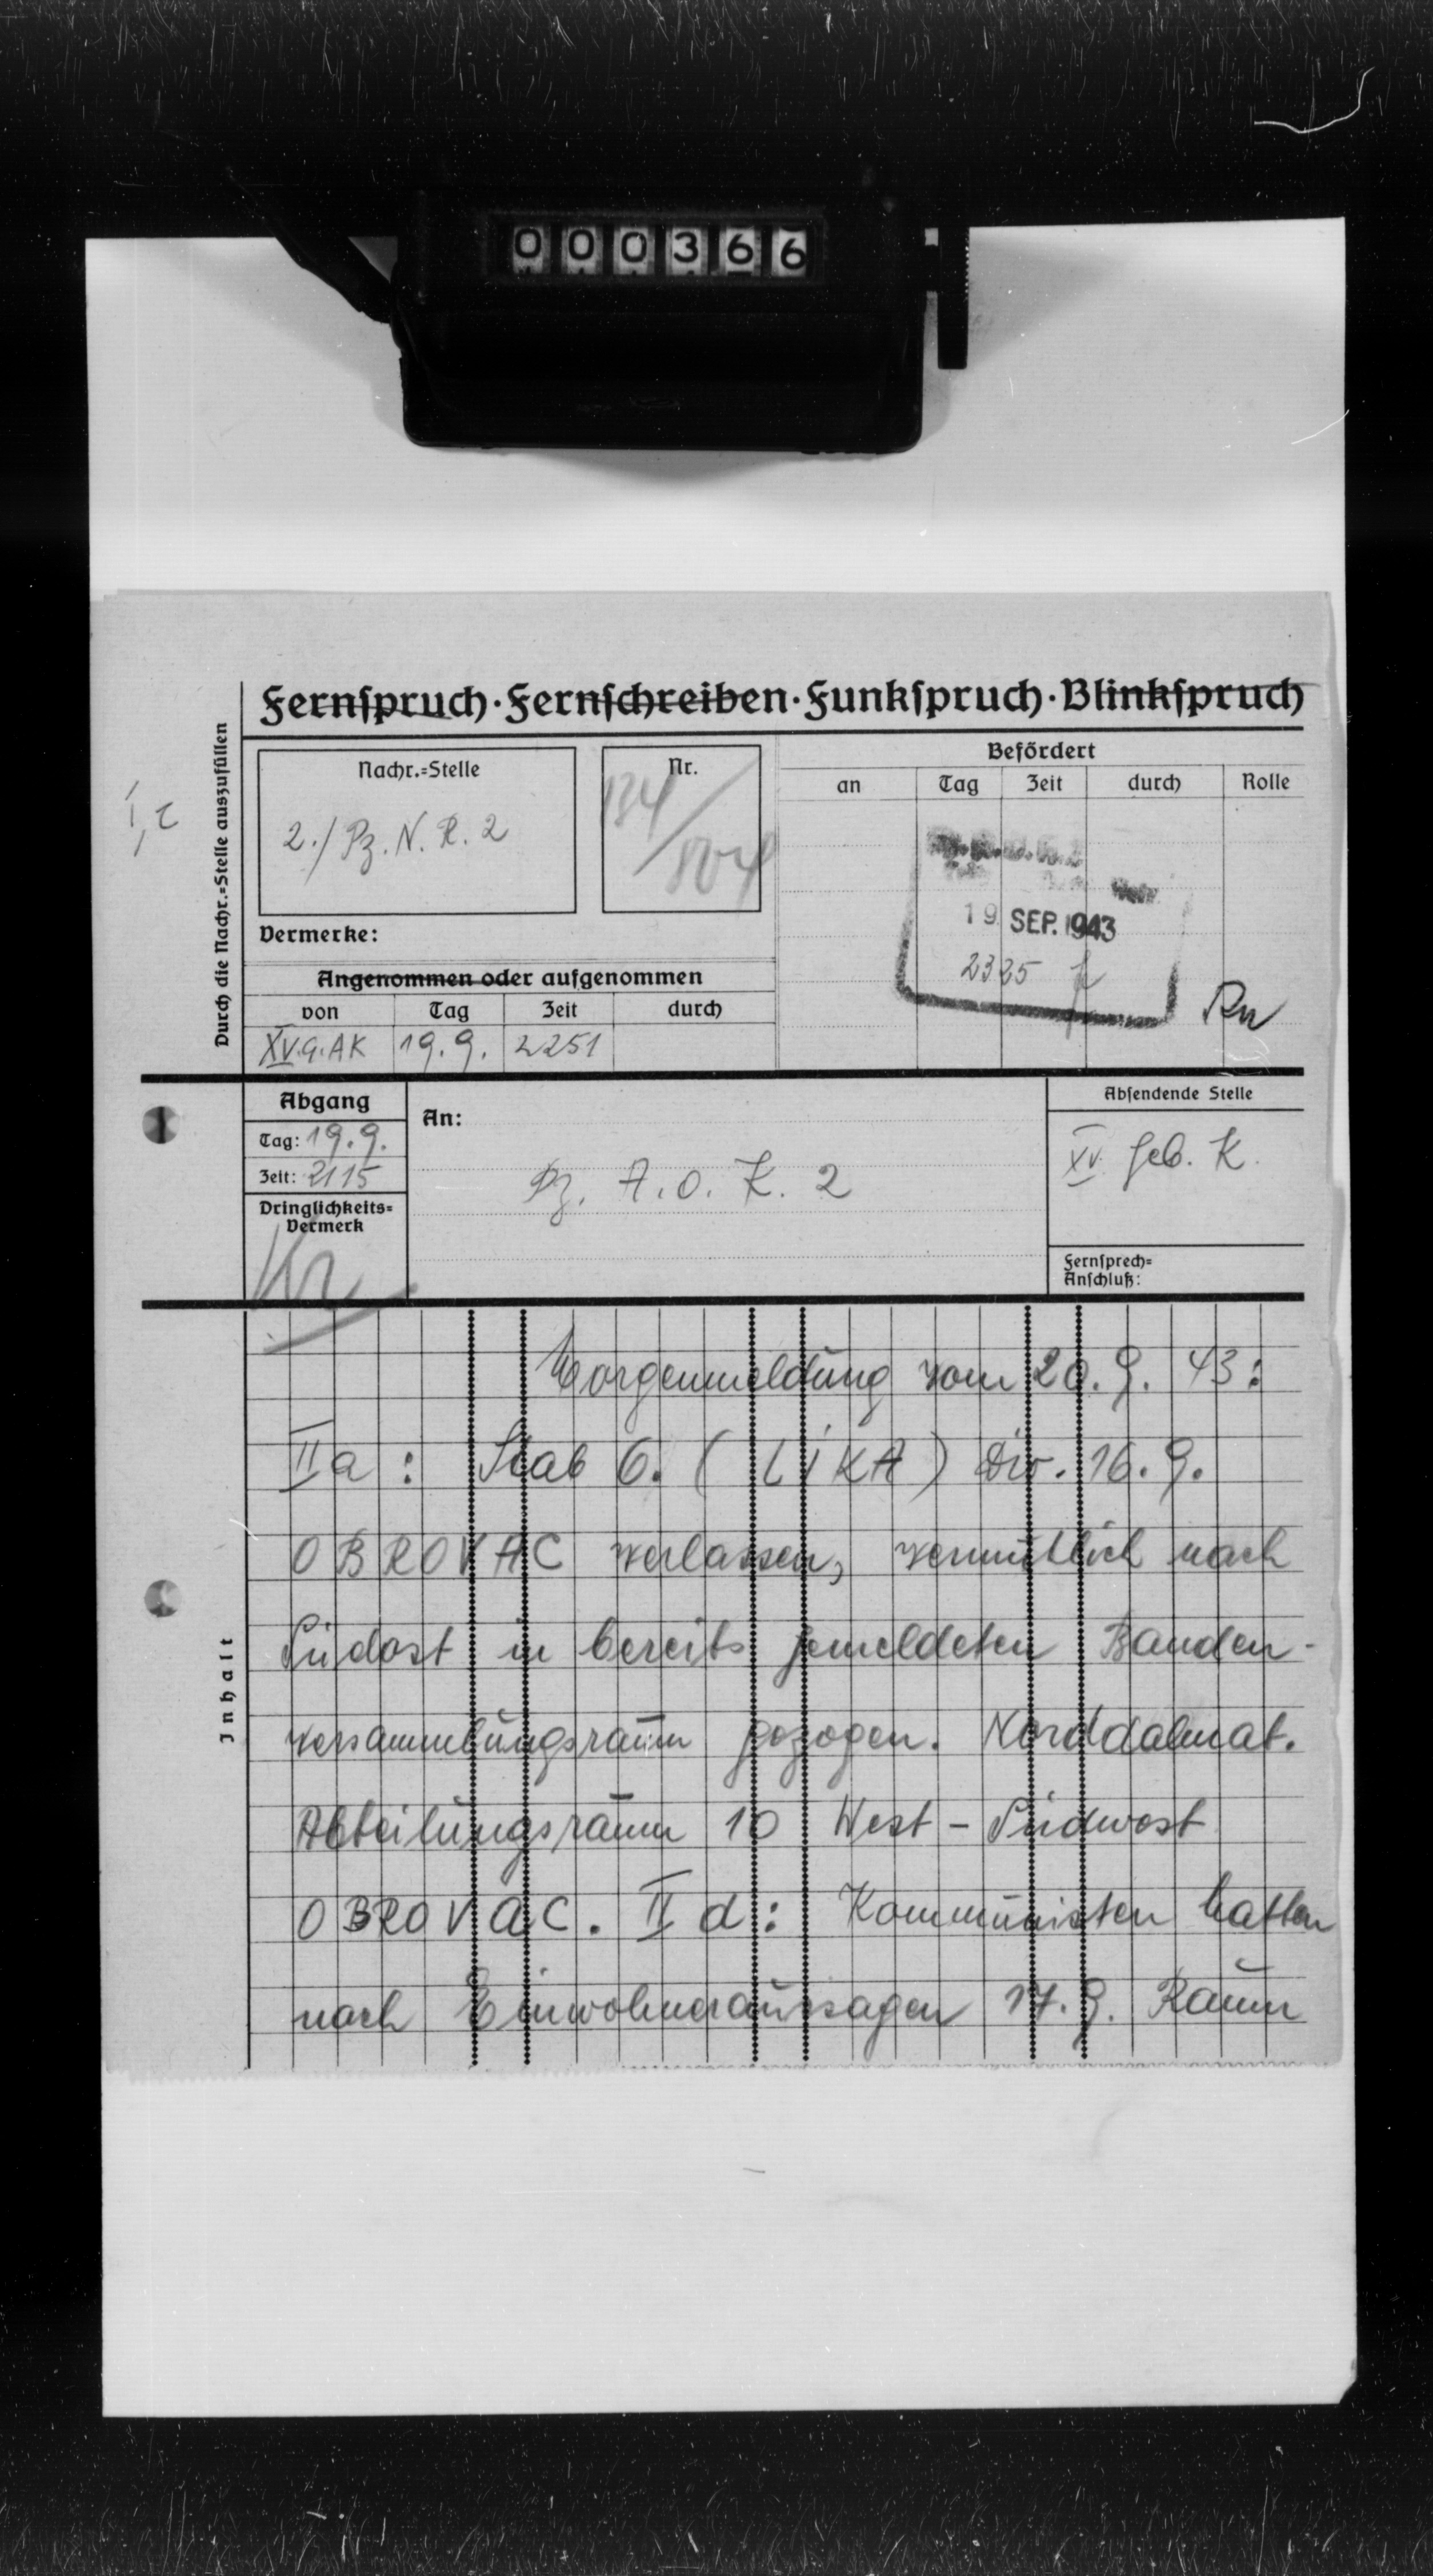 000366
Fernspruch · Fernschreiben · Funkspruch · Blinkspruch
Durch die Nachr.=Stelle auszufüllen
I,c
Nachr.=Stelle
2./Pz. N. R. 2
Nr.
134/
Vermerke:
Angenommen oder aufgenommen
von Tag Zeit durch
XV.G.AK 19.9. 2251
Befördert
an Tag Zeit durch Rolle
19. SEP. 1943
2325
Abgang
Tag: 19.9.
Zeit: 2115
Dringlichkeits=
Vermerk
Kr
An:
Pz. A.O.K. 2
Absendende Stelle
XV. Geb. K.
Fernsprech=
Anschluß:
Inhalt
Morgenmeldung vom 20.9. 43:
IIa: Stab 6. (LIKA) Div. 16.9.
OBROVAC verlassen, vermutlich nach
Südost in bereits gemeldeten Banden-
versammlungsraum gezogen. Norddalmat.
Abteilungsraum 10 West-Südwest
OBROVAC. II d: Kommunisten hatten
nach Einwohneraussagen 17.9. Raum